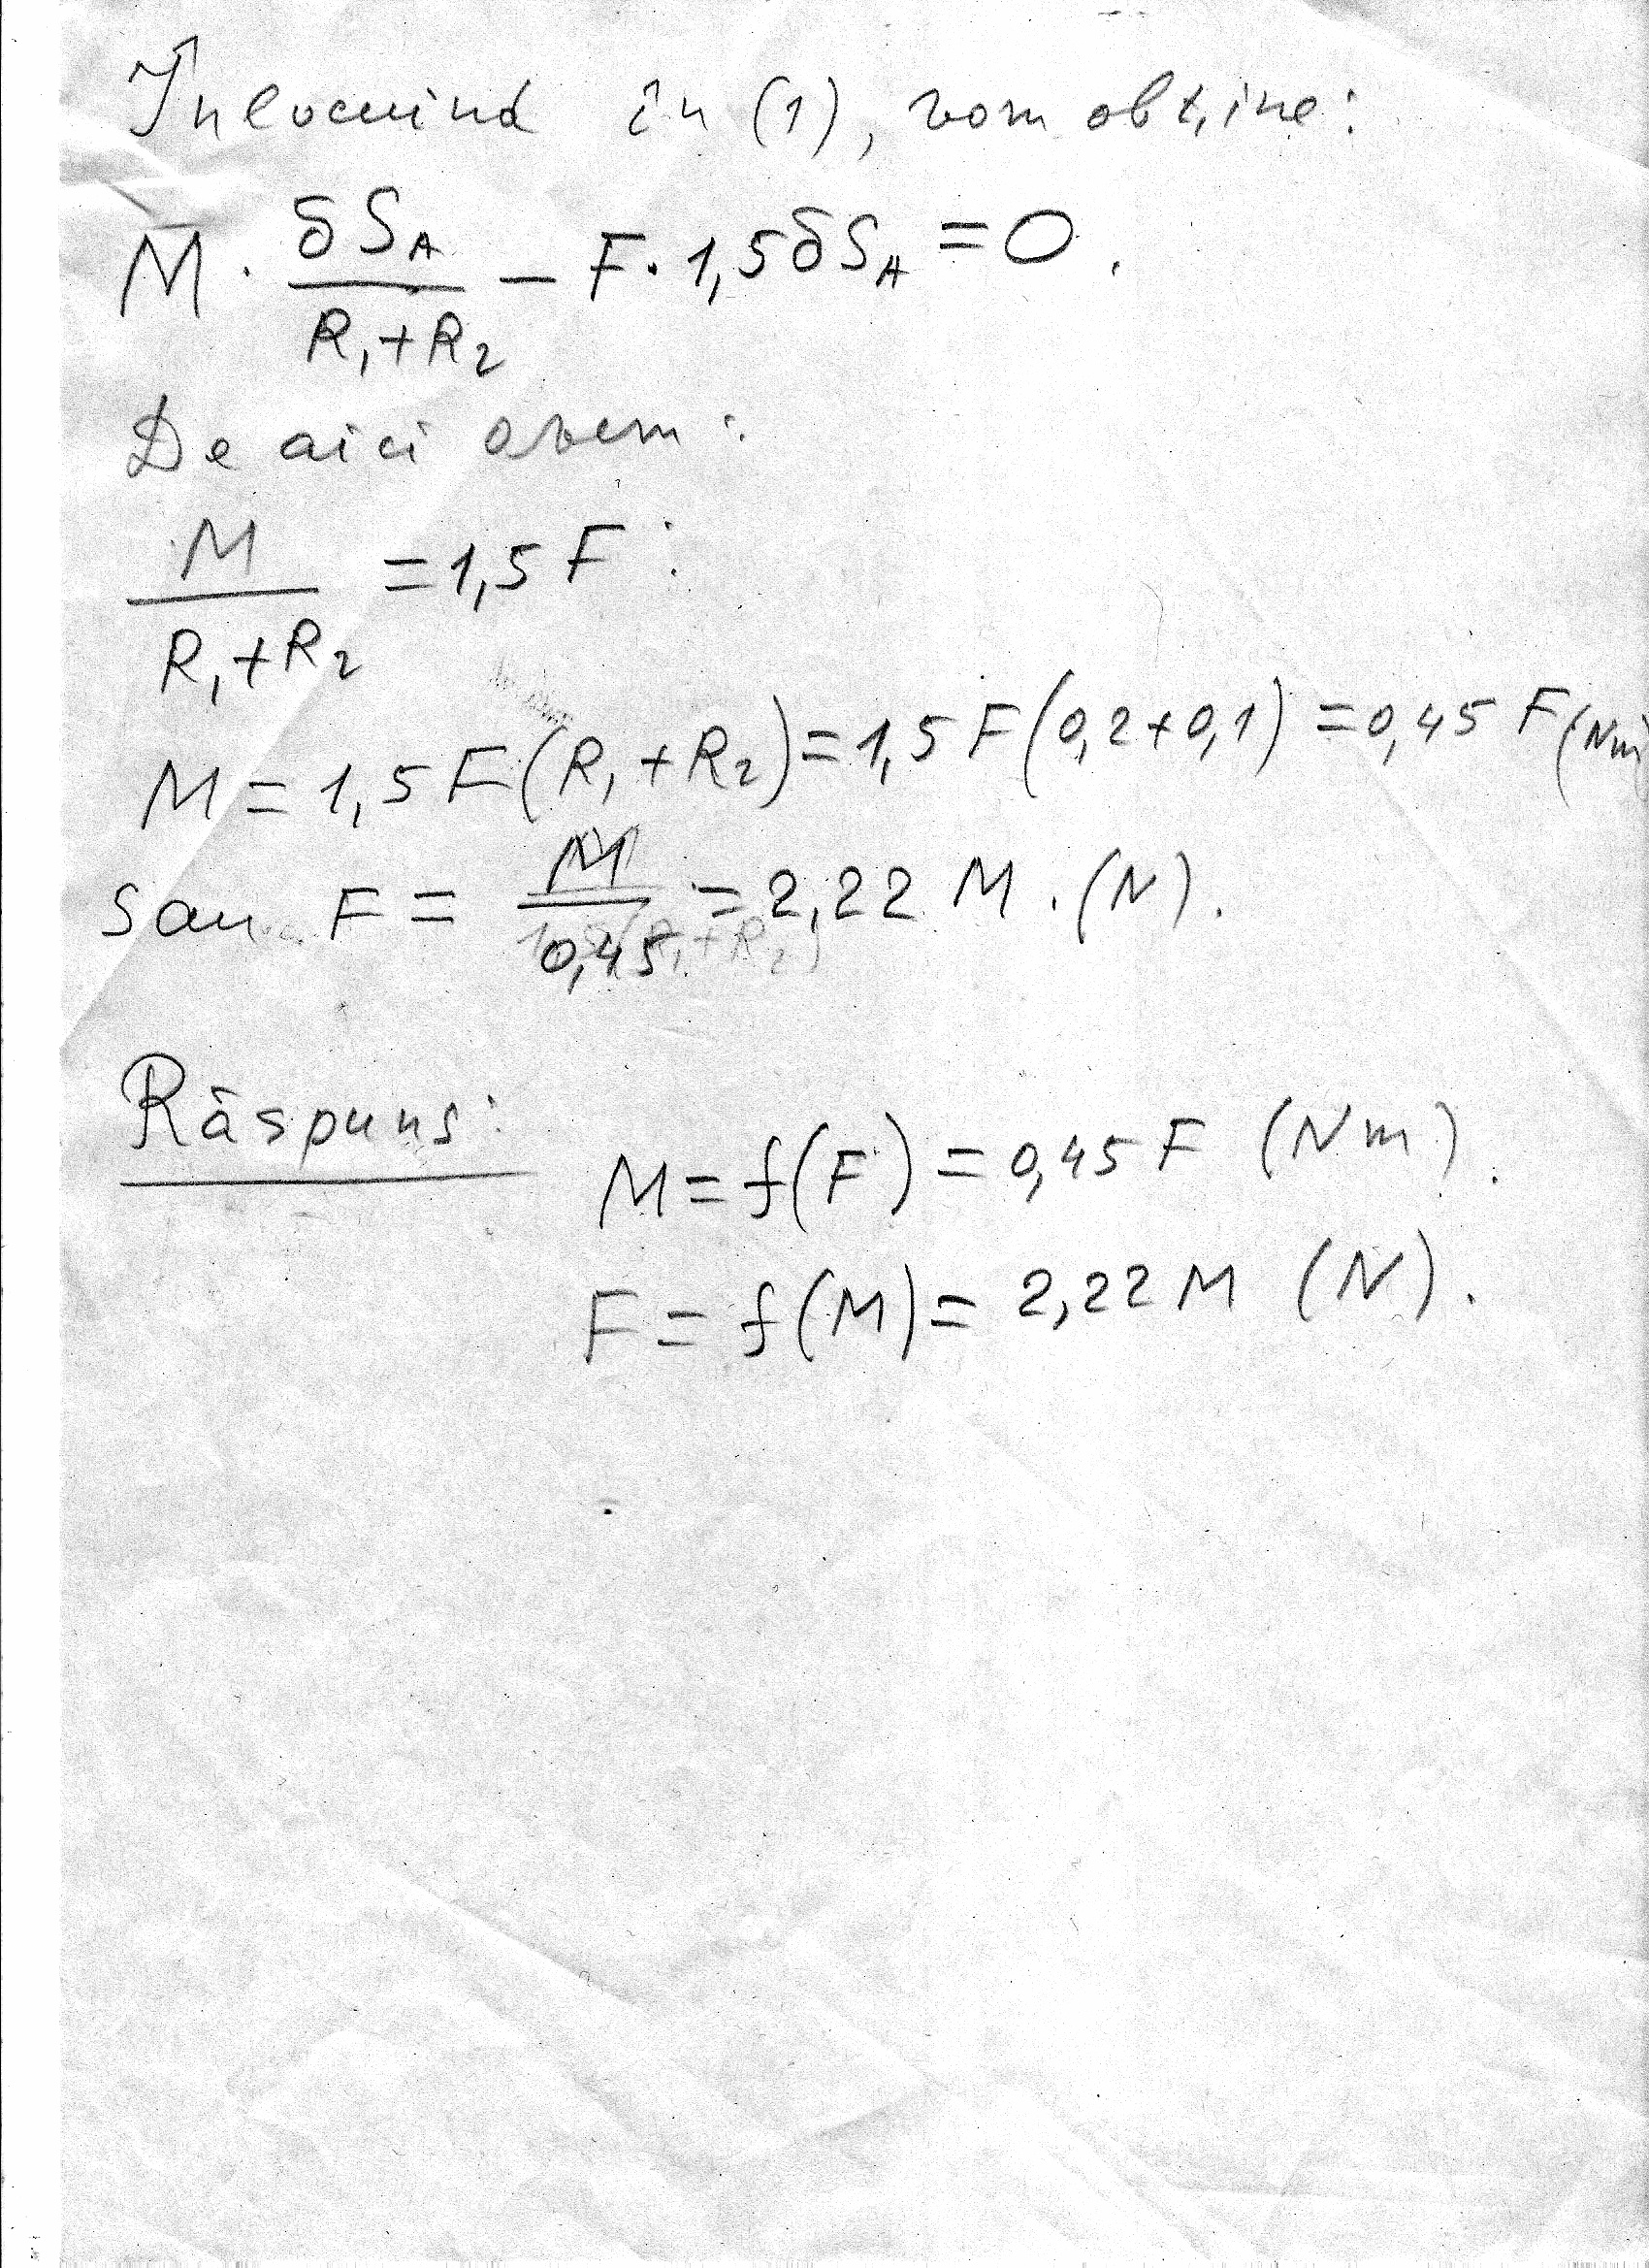 Înlocuind în (1), vom obține:
M · δS_A / (R₁+R₂) − F · 1,5 δS_A = 0.
De aici avem:
M / (R₁+R₂) = 1,5 F :
M = 1,5 F (R₁+R₂) = 1,5 F (0,2+0,1) = 0,45 F (Nm)
sau F = M / 0,45 = 2,22 M . (N).
Răspuns: M = f(F) = 0,45 F (Nm).
F = f(M) = 2,22 M (N).